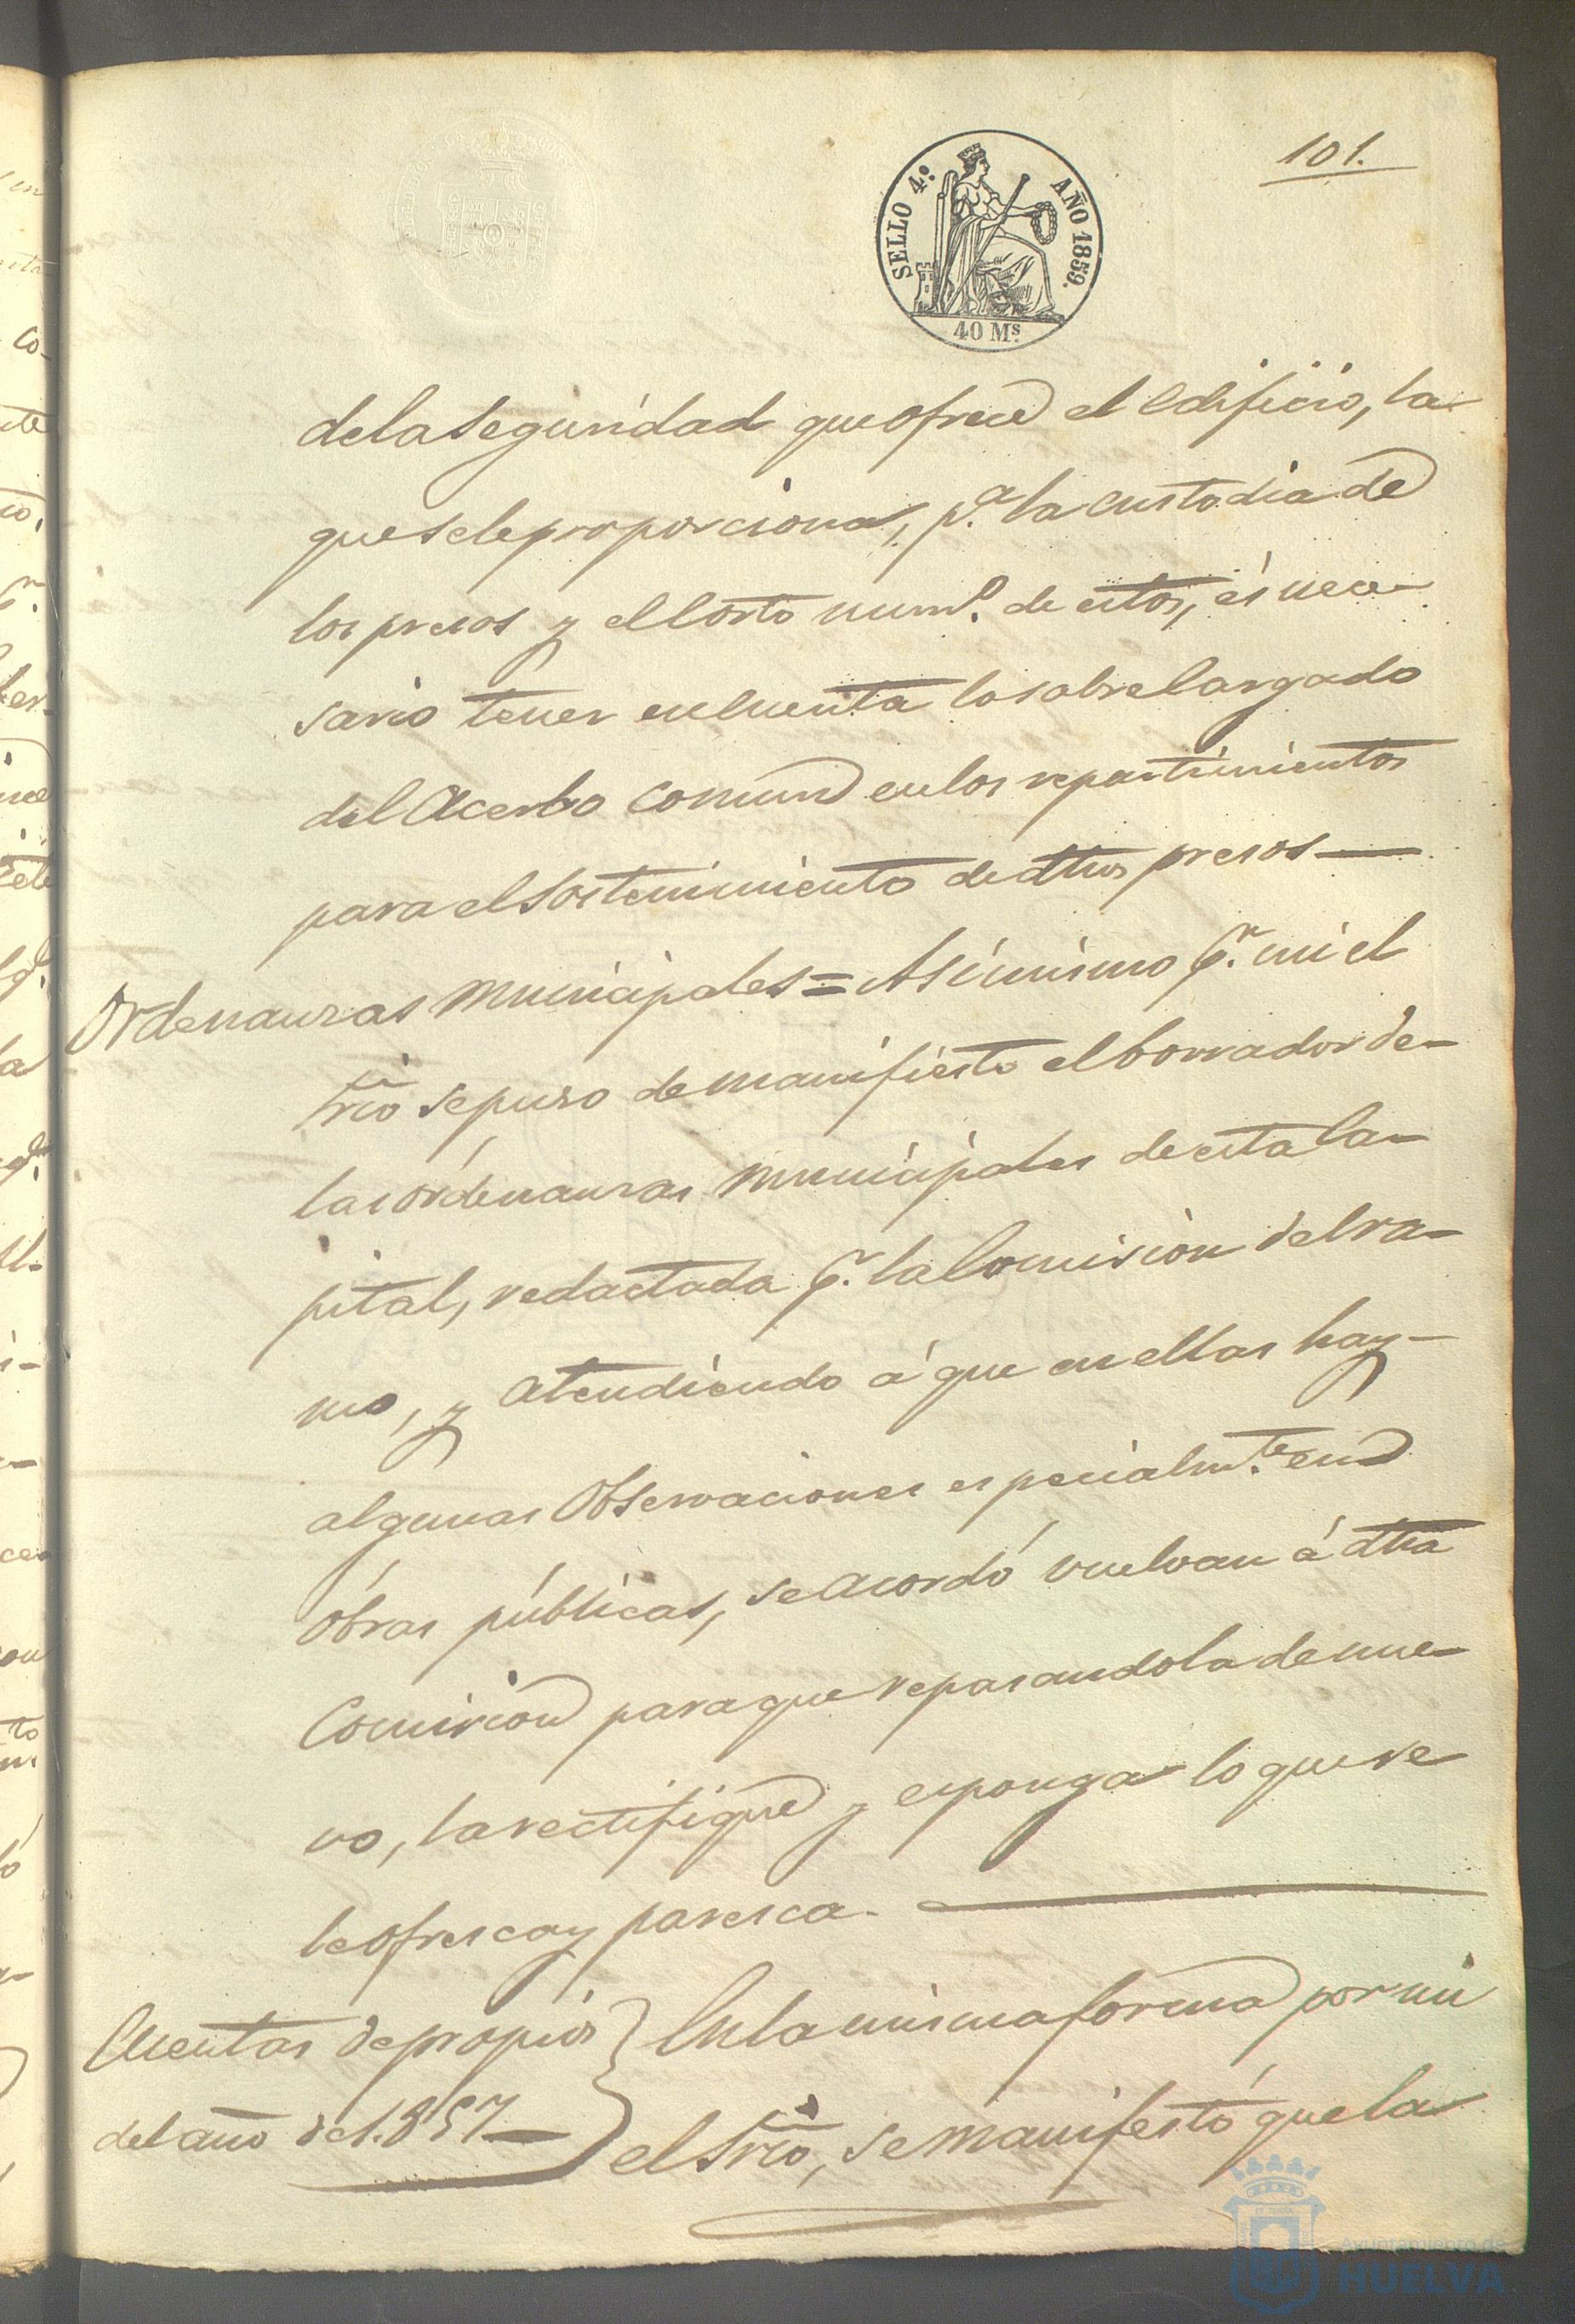 101.
SELLO 4.º AÑO 1859.
40 Ms.
de la seguridad que ofrece el edificio, la
que se le proporciona, p.a la custodia de
los presos y el corto num.o de estos, és nece-
sario tener en cuenta lo sobrecargado
del Acerbo comun en los repartimientos
para el sostenimiento de dhos presos —
Ordenanzas Municipales = Asimismo p.r mi el
Srio se puso de manifiesto el borrador de-
las órdenanzas Municipales de esta Ca-
pital, redactada p.r la Comision del ra-
mo, y atendiendo á que en ellas hay-
algunas Observaciones especialm.te en
óbras públicas, se acordó vuelvan á dha
Comision para que repasandola de nue-
vo, la rectifique y esponga lo que se
le ofresca y paresca. —
Cuentas de propios } En la misma forma por mi
del año de 1.857 — } el Srio, se manifestó que la
Ayuntamiento de
HUELVA